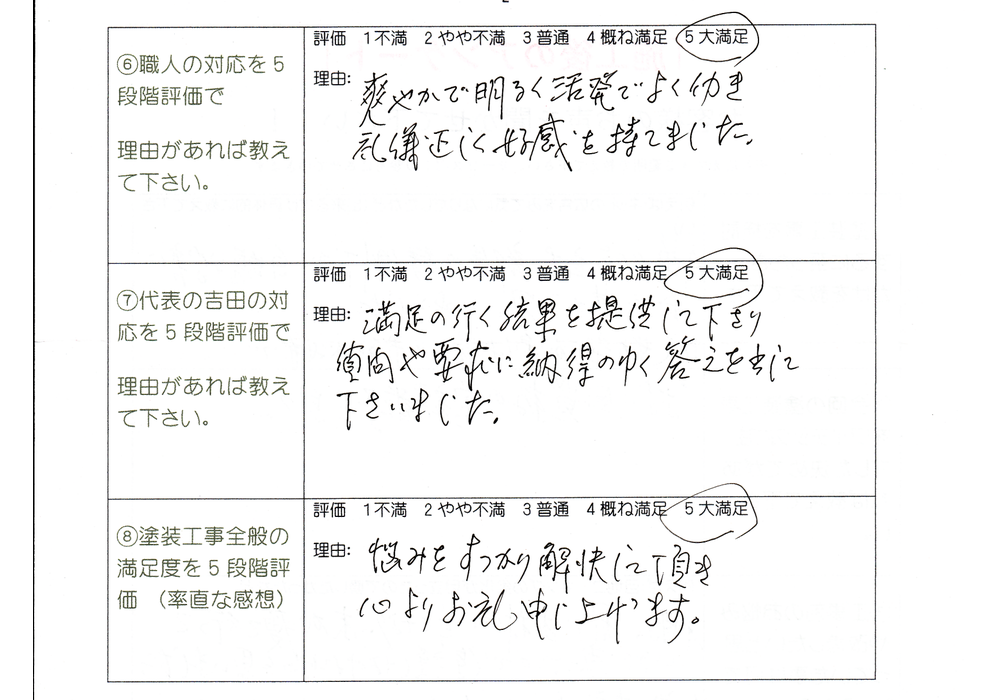 ⑥職人の対応を5
段階評価で
理由があれば教え
て下さい。
評価 1不満 2やや不満 3普通 4概ね満足 5大満足
理由: 爽やかで明るく活発でよく働き
礼儀正しく好感を持てました。
⑦代表の吉田の対
応を5段階評価で
理由があれば教え
て下さい。
評価 1不満 2やや不満 3普通 4概ね満足 5大満足
理由: 満足の行く結果を提供して下さり
質問や要求に納得のゆく答えを出して
下さいました。
⑧塗装工事全般の
満足度を5段階評
価 (率直な感想)
評価 1不満 2やや不満 3普通 4概ね満足 5大満足
理由: 悩みをすっかり解決して頂き
心よりお礼申し上げます。